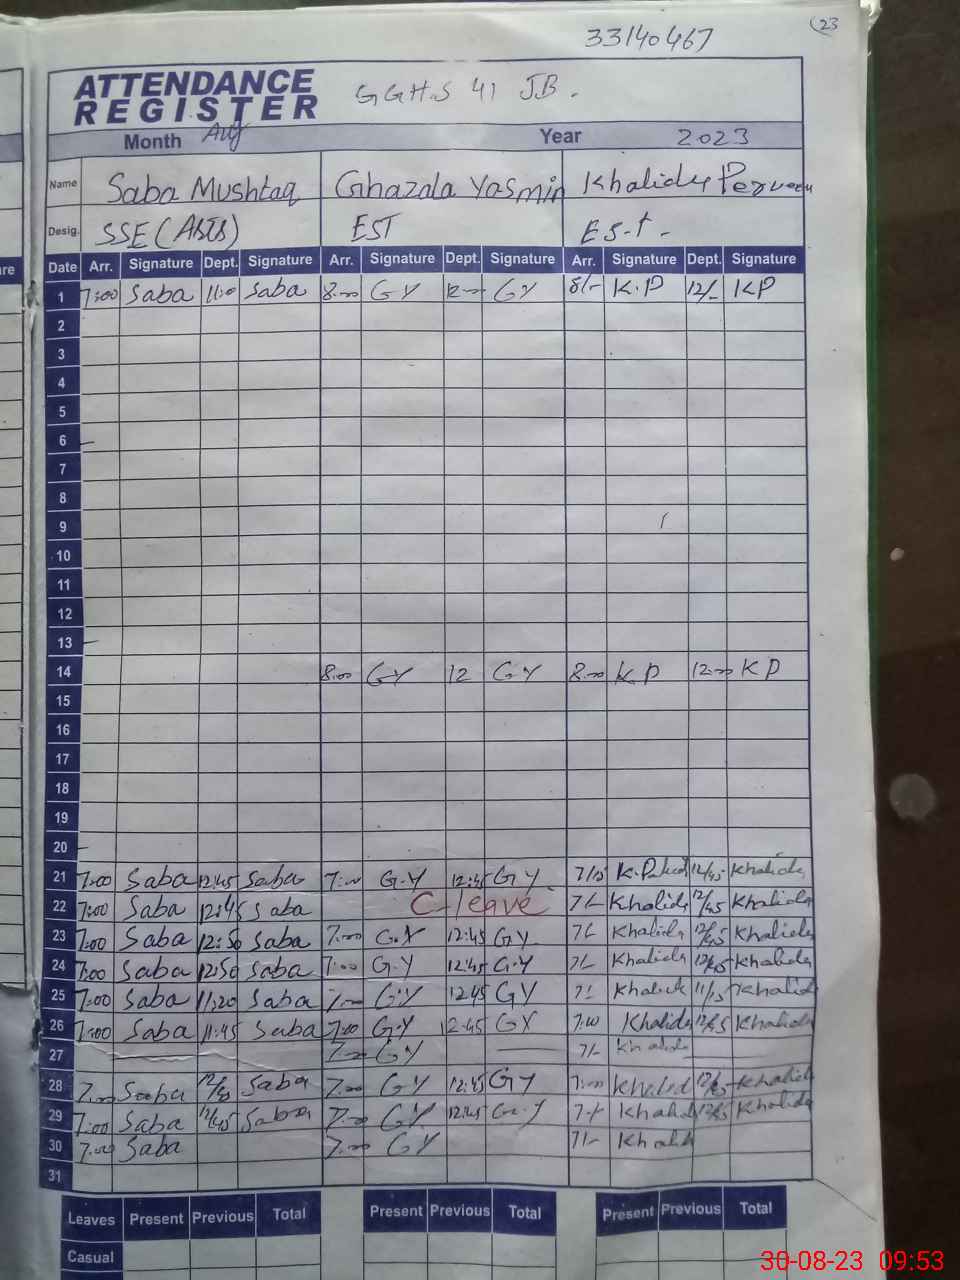 23
33140467
ATTENDANCE REGISTER GGHS 41 J.B.
Month Aug Year 2023
Name Saba Mushtaq Ghazala Yasmin Khalida Perveen
Desig. SSE EST E.S.t
Date Arr. Signature Dept. Signature Arr. Signature Dept. Signature Arr. Signature Dept. Signature
1 7:00 Saba 11:0 Saba 8:00 GY 12:00 GY 8/- K.P 12/- KP
2
3
4
5
6
7
8
9
10
11
12
13
14 8:00 GY 12 GY 8:00 KP 12:00 KP
15
16
17
18
19
20
21 7:00 Saba 12:45 Saba 7:00 G.Y 12:45 GY 7/15 12/45 Khalida
22 7:00 Saba 12:45 Saba C-leave 7/- Khalida 12/45 Khalida
23 7:00 Saba 12:50 Saba 7:00 G.Y 12:45 GY 7/- Khalida 12/45 Khalida
24 7:00 Saba 12:50 Saba 7:00 G.Y 12:45 G.Y 7/- Khalida 12/45 Khalida
25 7:00 Saba 11:20 Saba 7:00 GY 12:45 GY 7/- Khalida 11/15 Khalida
26 7:00 Saba 11:45 Saba 7:00 G.Y 12:45 GY 7:00 Khalida 12/45 Khalida
27 7:00 GY 7/- Khalida
28 7:00 Saba 12/45 Saba 7:00 GY 12:45 GY 7:00 Khalid 12/45 Khalida
29 7:00 Saba 12/45 Saba 7:00 GY 12:45 G.Y 7/- Khalid 12/45 Khalida
30 7:00 Saba 7:00 GY 7/- Khalida
31
Leaves Present Previous Total Present Previous Total Present Previous Total
Casual
30-08-23 09:53